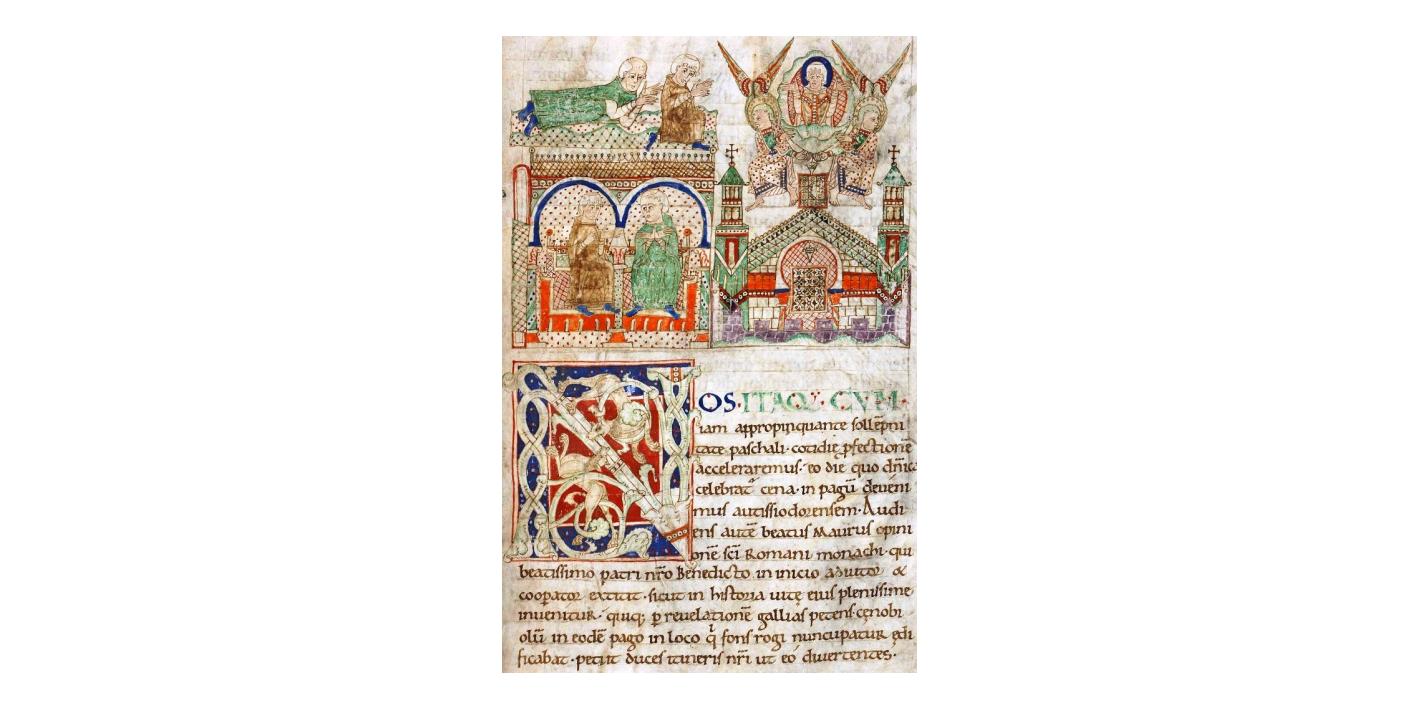 NOS·ITAQ; CVM·
iam appropinquante sollẽpni
tate paschali· cotidiẽ pfectionẽ
acceleraremus· eo die quo dñica
celebrat cena· in pagũ deueni
mus autissiodorensem· Audi
ens autẽ beatus Maurus opini
onẽ sc̃i Romani monachi· qui
beatissimo patri nr̃o Benedicto in inicio adiutor &
coopator extitit· sicut in historia uitę eius plenissime
inuenitur· quiq; p reuelationẽ gallias petens· cęnobi
olũ in eodẽ pago in loco q fons rogi nuncupatur ędi
ficabat· petiit duces itineris nr̃i ut eo diuertentes·